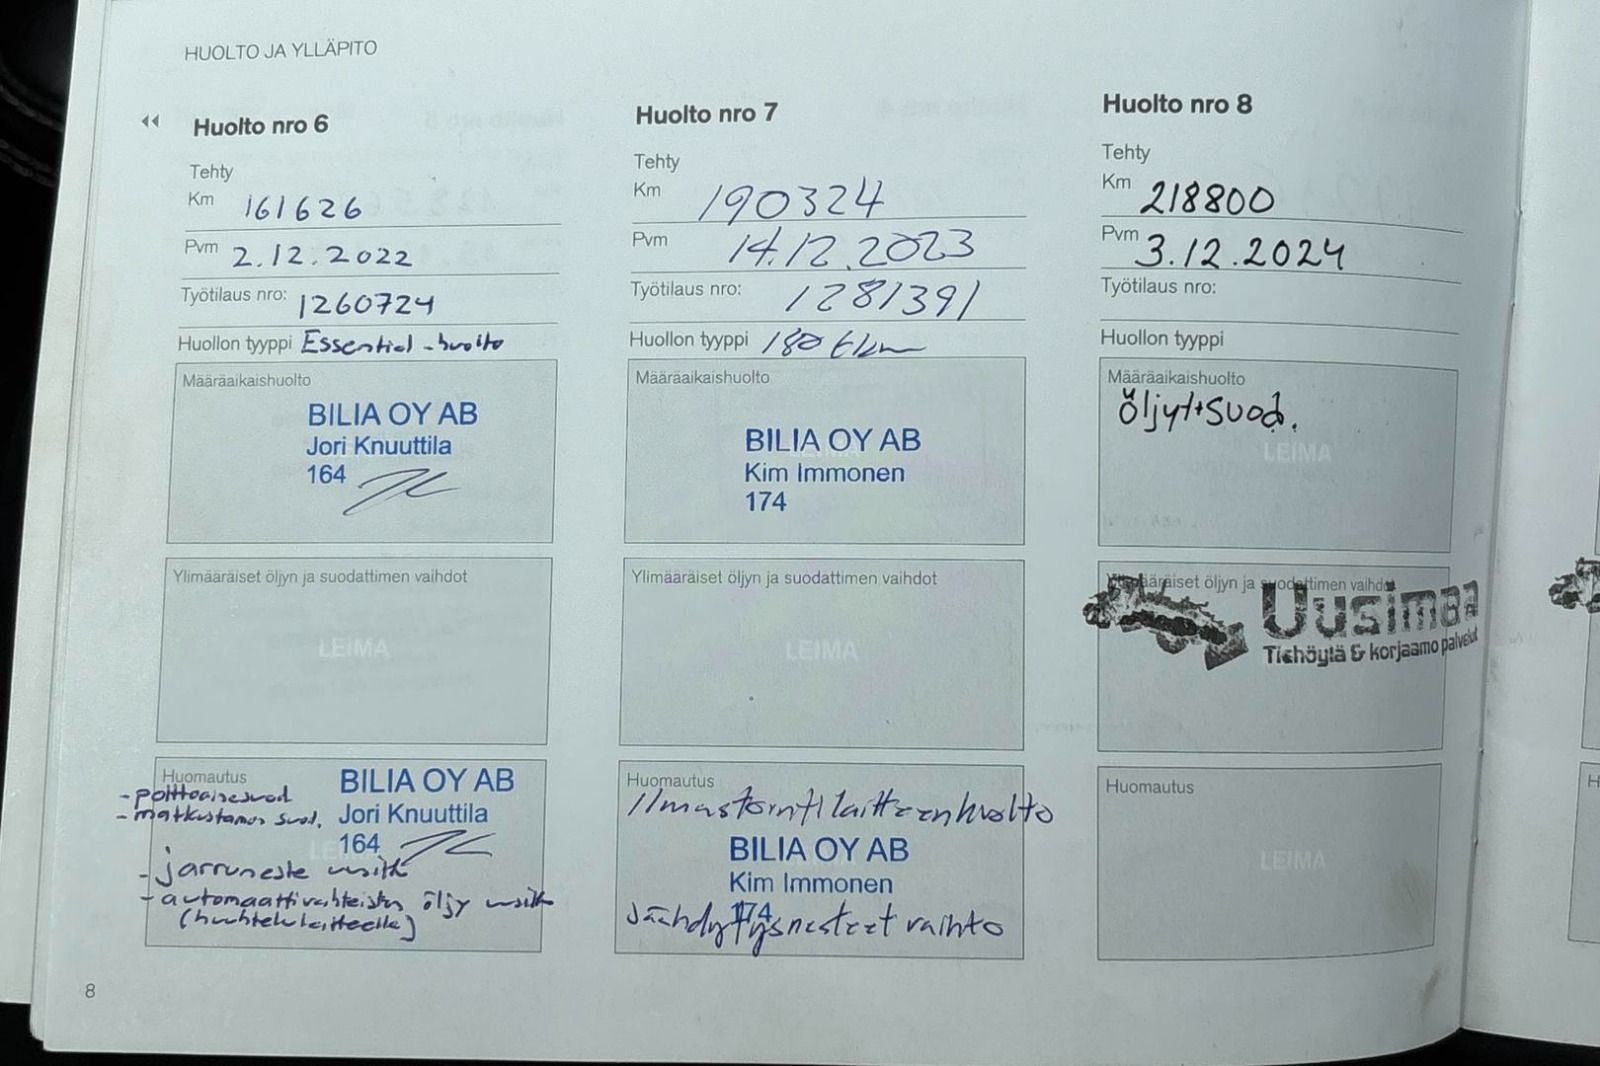 HUOLTO JA YLLÄPITO
Huolto nro 6
Tehty
Km 161626
Pvm 2.12.2022
Työtilaus nro: 1260724
Huollon tyyppi Essential-huolto
Määräaikaishuolto
BILIA OY AB
Jori Knuuttila
164
Ylimääräiset öljyn ja suodattimen vaihdot
LEIMA
Huomautus
BILIA OY AB
- polttoainesuod
- matkustamon suod.
Jori Knuuttila
164
- jarruneste
- automaattivaihteiston öljy
(huuhtelulaitteella)
Huolto nro 7
Tehty
Km 190324
Pvm 14.12.2023
Työtilaus nro: 1281391
Huollon tyyppi 180
Määräaikaishuolto
BILIA OY AB
Kim Immonen
174
Ylimääräiset öljyn ja suodattimen vaihdot
LEIMA
Huomautus
Ilmastointilaitteenhuolto
BILIA OY AB
Kim Immonen
174
Jäähdytysnesteet vaihto
Huolto nro 8
Tehty
Km 218800
Pvm 3.12.2024
Työtilaus nro:
Huollon tyyppi
Määräaikaishuolto
Öljyt+suod.
LEIMA
Ylimääräiset öljyn ja suodattimen vaihdot
Uusimaa
Tiehöylä & korjaamo palvelut
Huomautus
LEIMA
8